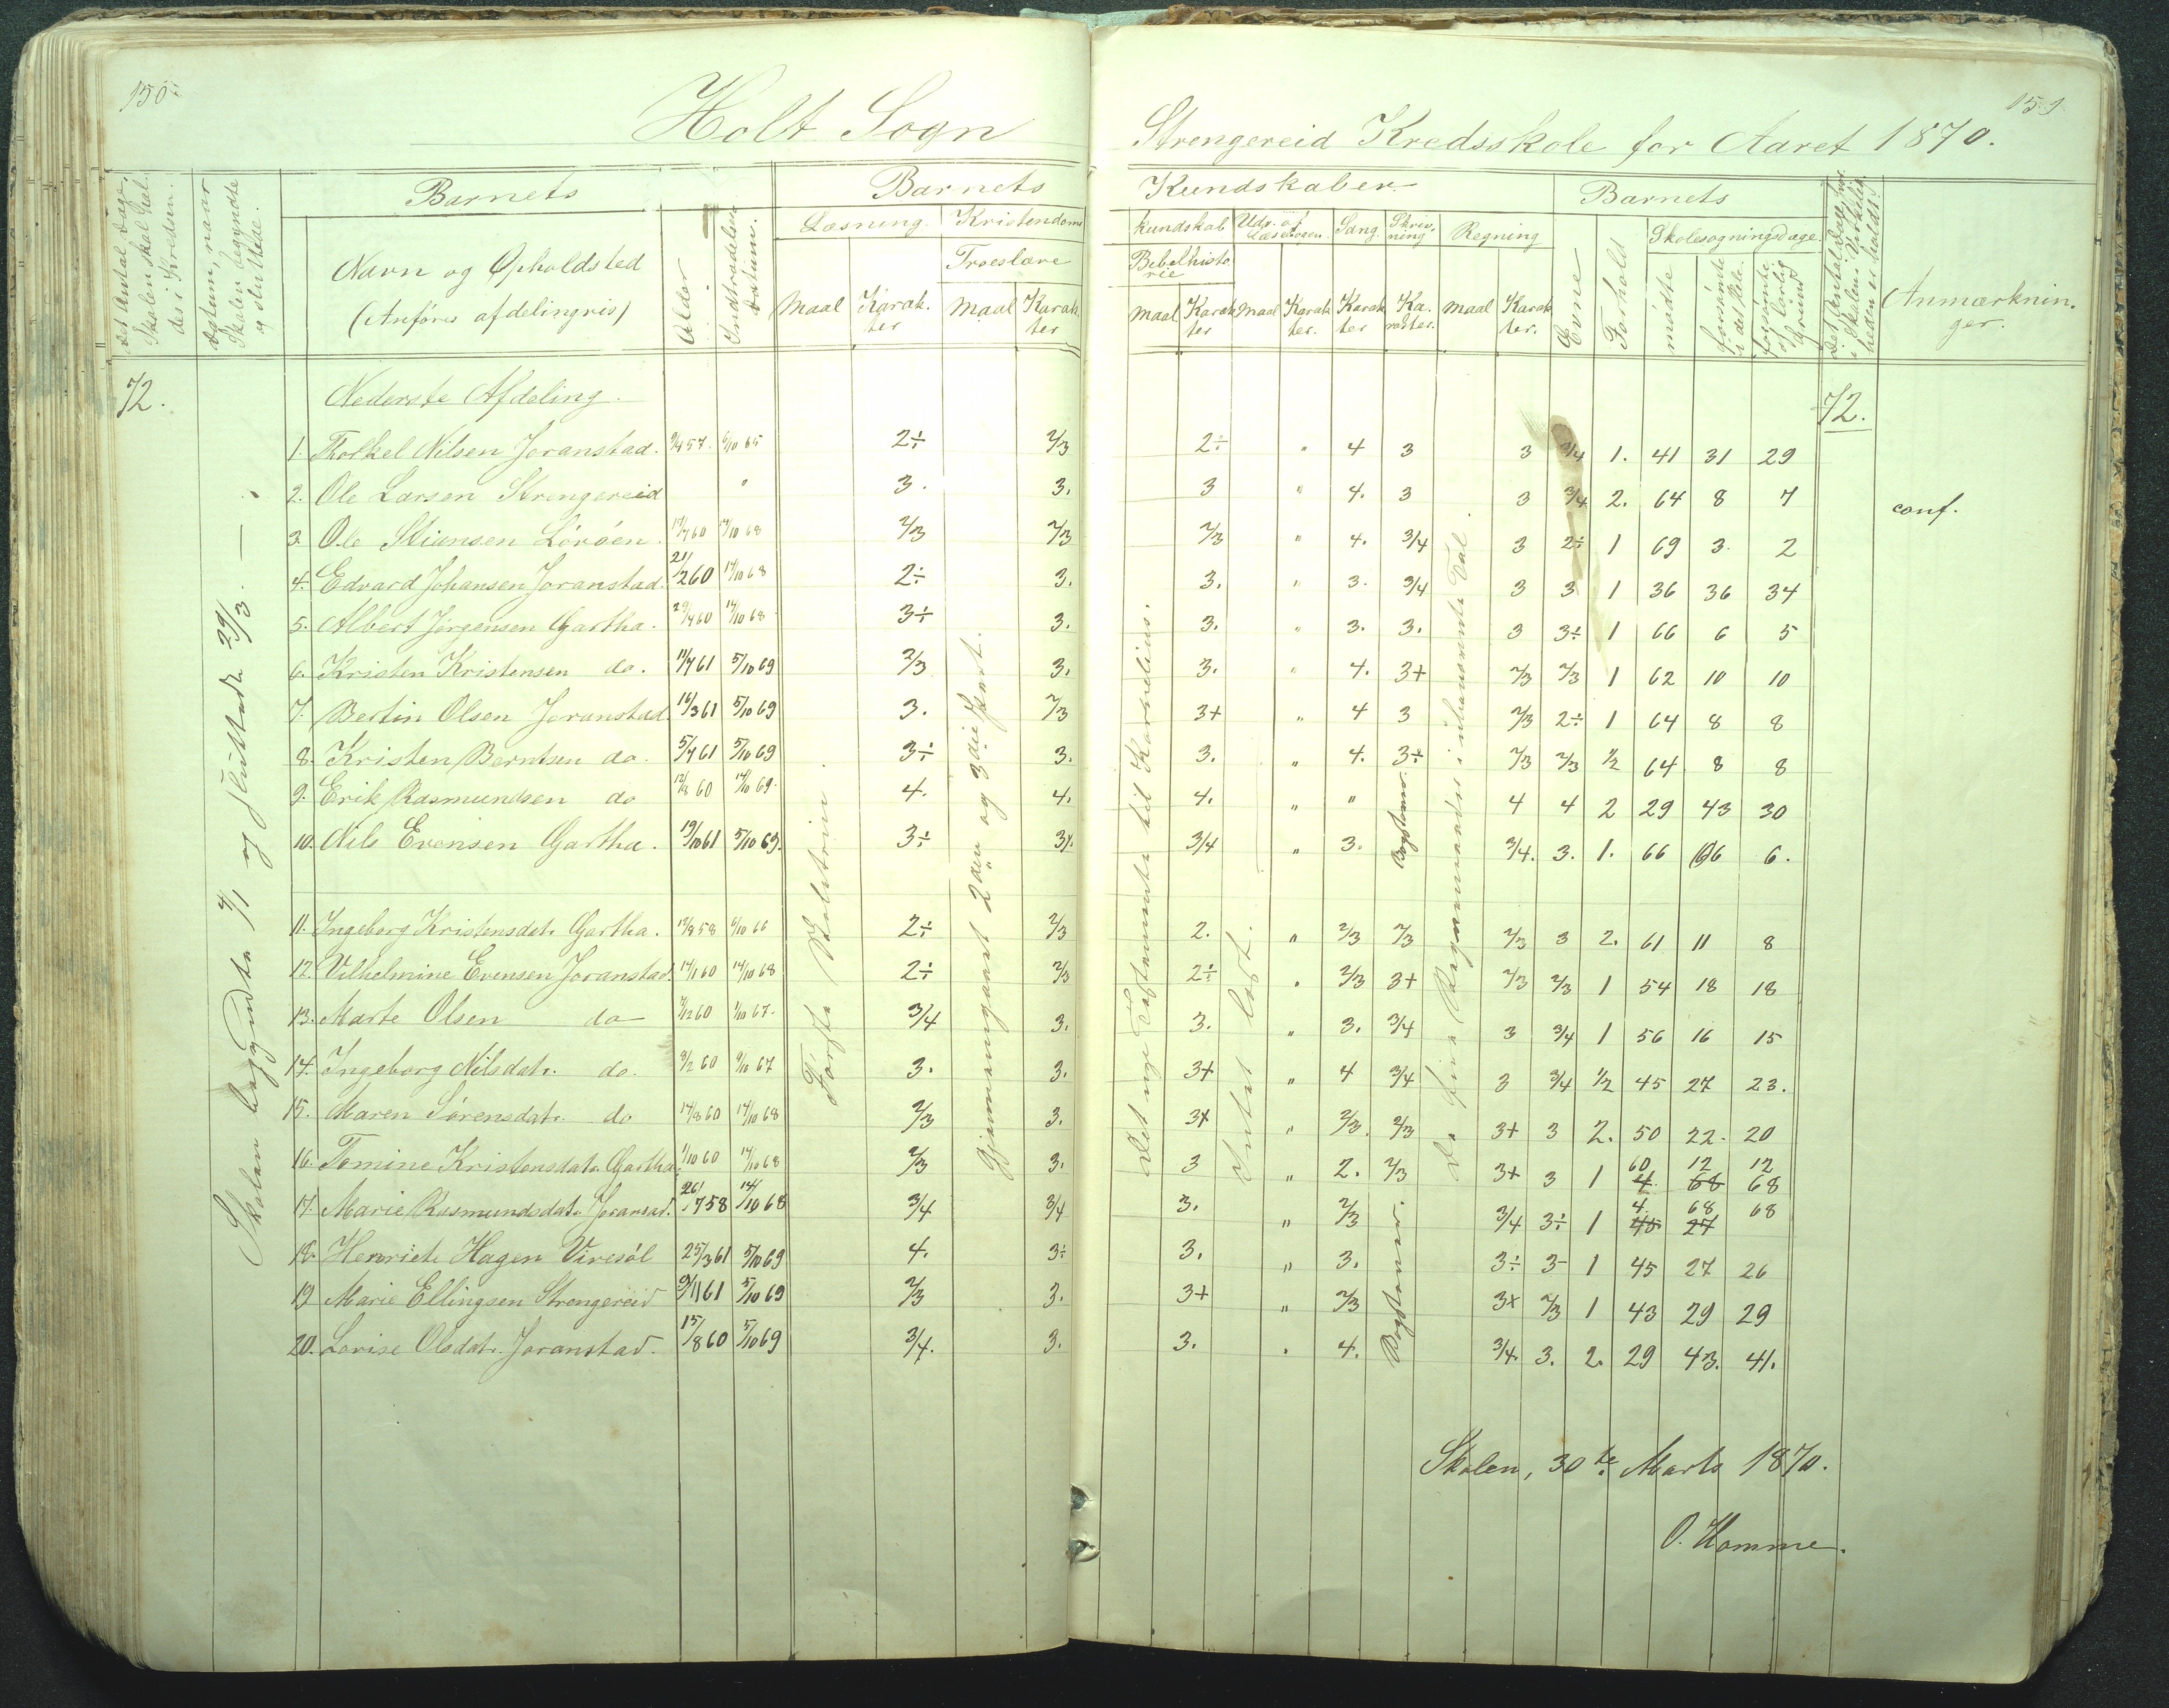 150.
Holt Sogn
Det Antal Dage, Skolen skal holdes i Kredsen.
Datum, naar Skolen begyndte og sluttede.
Barnets
Navn og Opholdsted
(Anføres afdelingsvis)
Alder
Indtrædelses datum.
Barnets
Læsning.
Kristendoms
Troeslære
Maal
Karakter
Maal
Karakter
72.
Nederste Afdeling.
Skolen begyndte 4/1 og sluttede 29/3. —
Første Skoletrin.
Gjennemgaaet 2den og 3die Part.
1. Tholkel Nilsen Joranstad. 9/457. 6/10 65 2÷ 2/3
2. Ole Larsen Strengereid " 3. 3.
3. Ole Stiansen Lövöen. 17/760 14/10 68 2/3 2/3
4. Edvard Johansen Joranstad. 21/260 14/10 68 2÷ 3.
5. Albert Jörgensen Gartha. 29/460 14/10 68 3÷ 3.
6. Kristen Kristensen do. 11/761 5/1069 2/3 3.
7. Bertin Olsen Joranstad 16/361 5/1069 3. 2/3
8. Kristen Berntsen do. 5/461 5/1069 3÷ 3.
9. Erik Rasmundsen do 12/8 60 14/10 69. 4. 4.
10. Nils Evensen Gartha. 19/1061 5/1069. 3÷ 3+.
11. Ingeborg Kristensdatr. Gartha. 12/858 6/10 66 2÷ 2/3
12. Vilhelmine Evensen Joranstad. 14/160 14/10 68 2÷ 2/3
13. Marte Olsen do 7/1260 1/10 67. 3/4 3.
14. Ingeborg Nilsdatr. do. 3/2 60 9/10 67 3. 3.
15. Maren Sörensdatr. do 14/860 14/10 68 2/3 3.
16. Tomine Kristensdatr. Gartha. 1/10 60 14/10 68 2/3 3.
17. Marie Rasmundsdatr. Joransad. 26/758 14/10 68 3/4 3/4
18. Henriete Hagen Viresöl 25/361 5/1069 4. 3÷
19 Marie Ellingsen Strengereid 9/1161 5/1069 2/3 3.
20. Lovise Olsdatr. Joranstad. 15/860 5/1069 3/4. 3.
151.
Strengereid Kredsskole for Aaret 1870.
Kundskaber
Barnets
kundskab
Udv. af Læsebogen.
Sang.
Skrivning
Regning
Bibelhistorie
Maal
Karakter
Maal
Karakter.
Karakter
Karakter.
Maal
Karakter.
Evne
Forhold
Skolesøgningsdage.
mødte
forsømte i det Hele.
forsømte af lovlig Grund
Det Antal Dage, hvori Skolen i Virkeligheden er holdt.
Anmærkninger.
Det nye Testamente til Kornelius.
Intet læst.
De fire Regningsarter i ubenævnte Tal.
72.
2÷ " 4 3 3 3/4 1. 41 31 29
3 " 4. 3 3 3/4 2. 64 8 7 conf.
2/3 " 4. 3/4 3 2÷ 1 69 3. 2
3. " 3. 3/4 3 3 1 36 36 34
3. " 3. 3. 3 3÷ 1 66 6 5
3. " 4. 3+ 2/3 2/3 1 62 10 10
3+ " 4 3 2/3 2÷ 1 64 8 8
3. " 4. 3÷ 2/3 2/3 1/2 64. 8 8
4. " " Bogstaver. 4 4 2 29 43 30
3/4 " 3. 3/4. 3. 1. 66 6 6.
2. " 2/3 2/3 2/3 3 2. 61 11 8
2÷ " 2/3 3+ 2/3 2/3 1 54 18 18
3. " 3. 3/4 3 3/4 1 56 16 15
3+ " 4 3/4 3 3/4 1/2 45 27 23.
3+ " 2/3. 2/3 3+ 3 2. 50 22. 20
3 " 2. 2/3 3+ 3 1 60 12 12
4. 68 68
3. " 2/3 Bogstaver. 3/4 3÷ 1 4. 68 68
45 27
3. " 3. 3÷ 3- 1 45 27 26
3+ " 2/3 3+ 2/3 1 43 29 29
3. " 4. 3/4. 3. 2. 29 43. 41.
Skolen, 30te Marts 1870.
O. Homme.